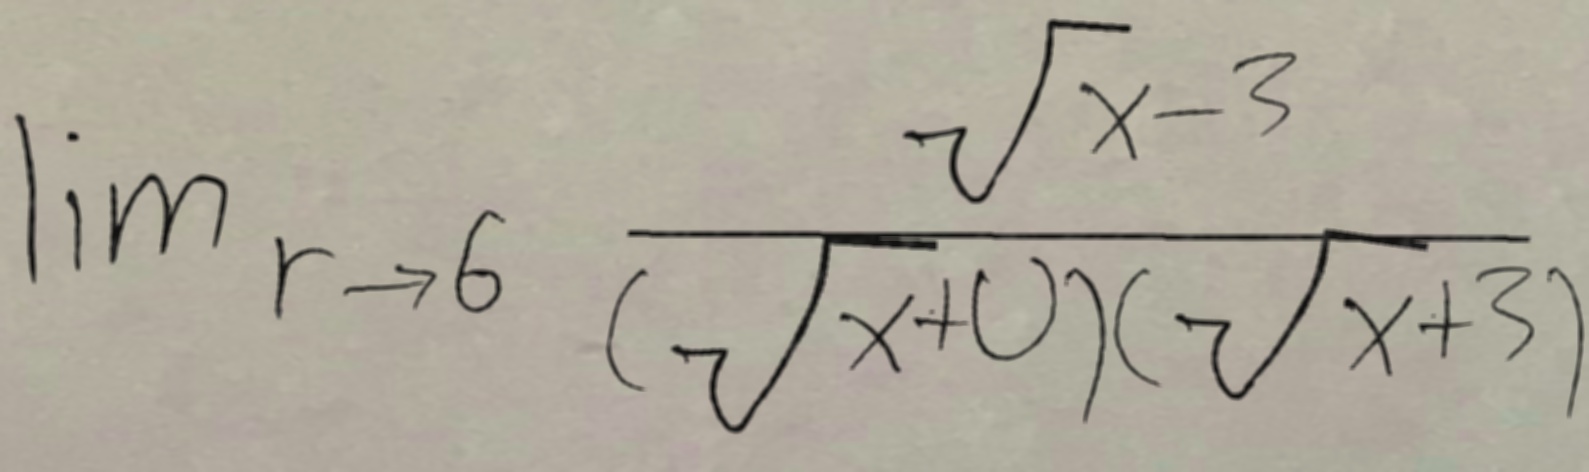 \lim_{r \to 6} \frac{\sqrt{x-3}}{(\sqrt{x+0})(\sqrt{x+3})}